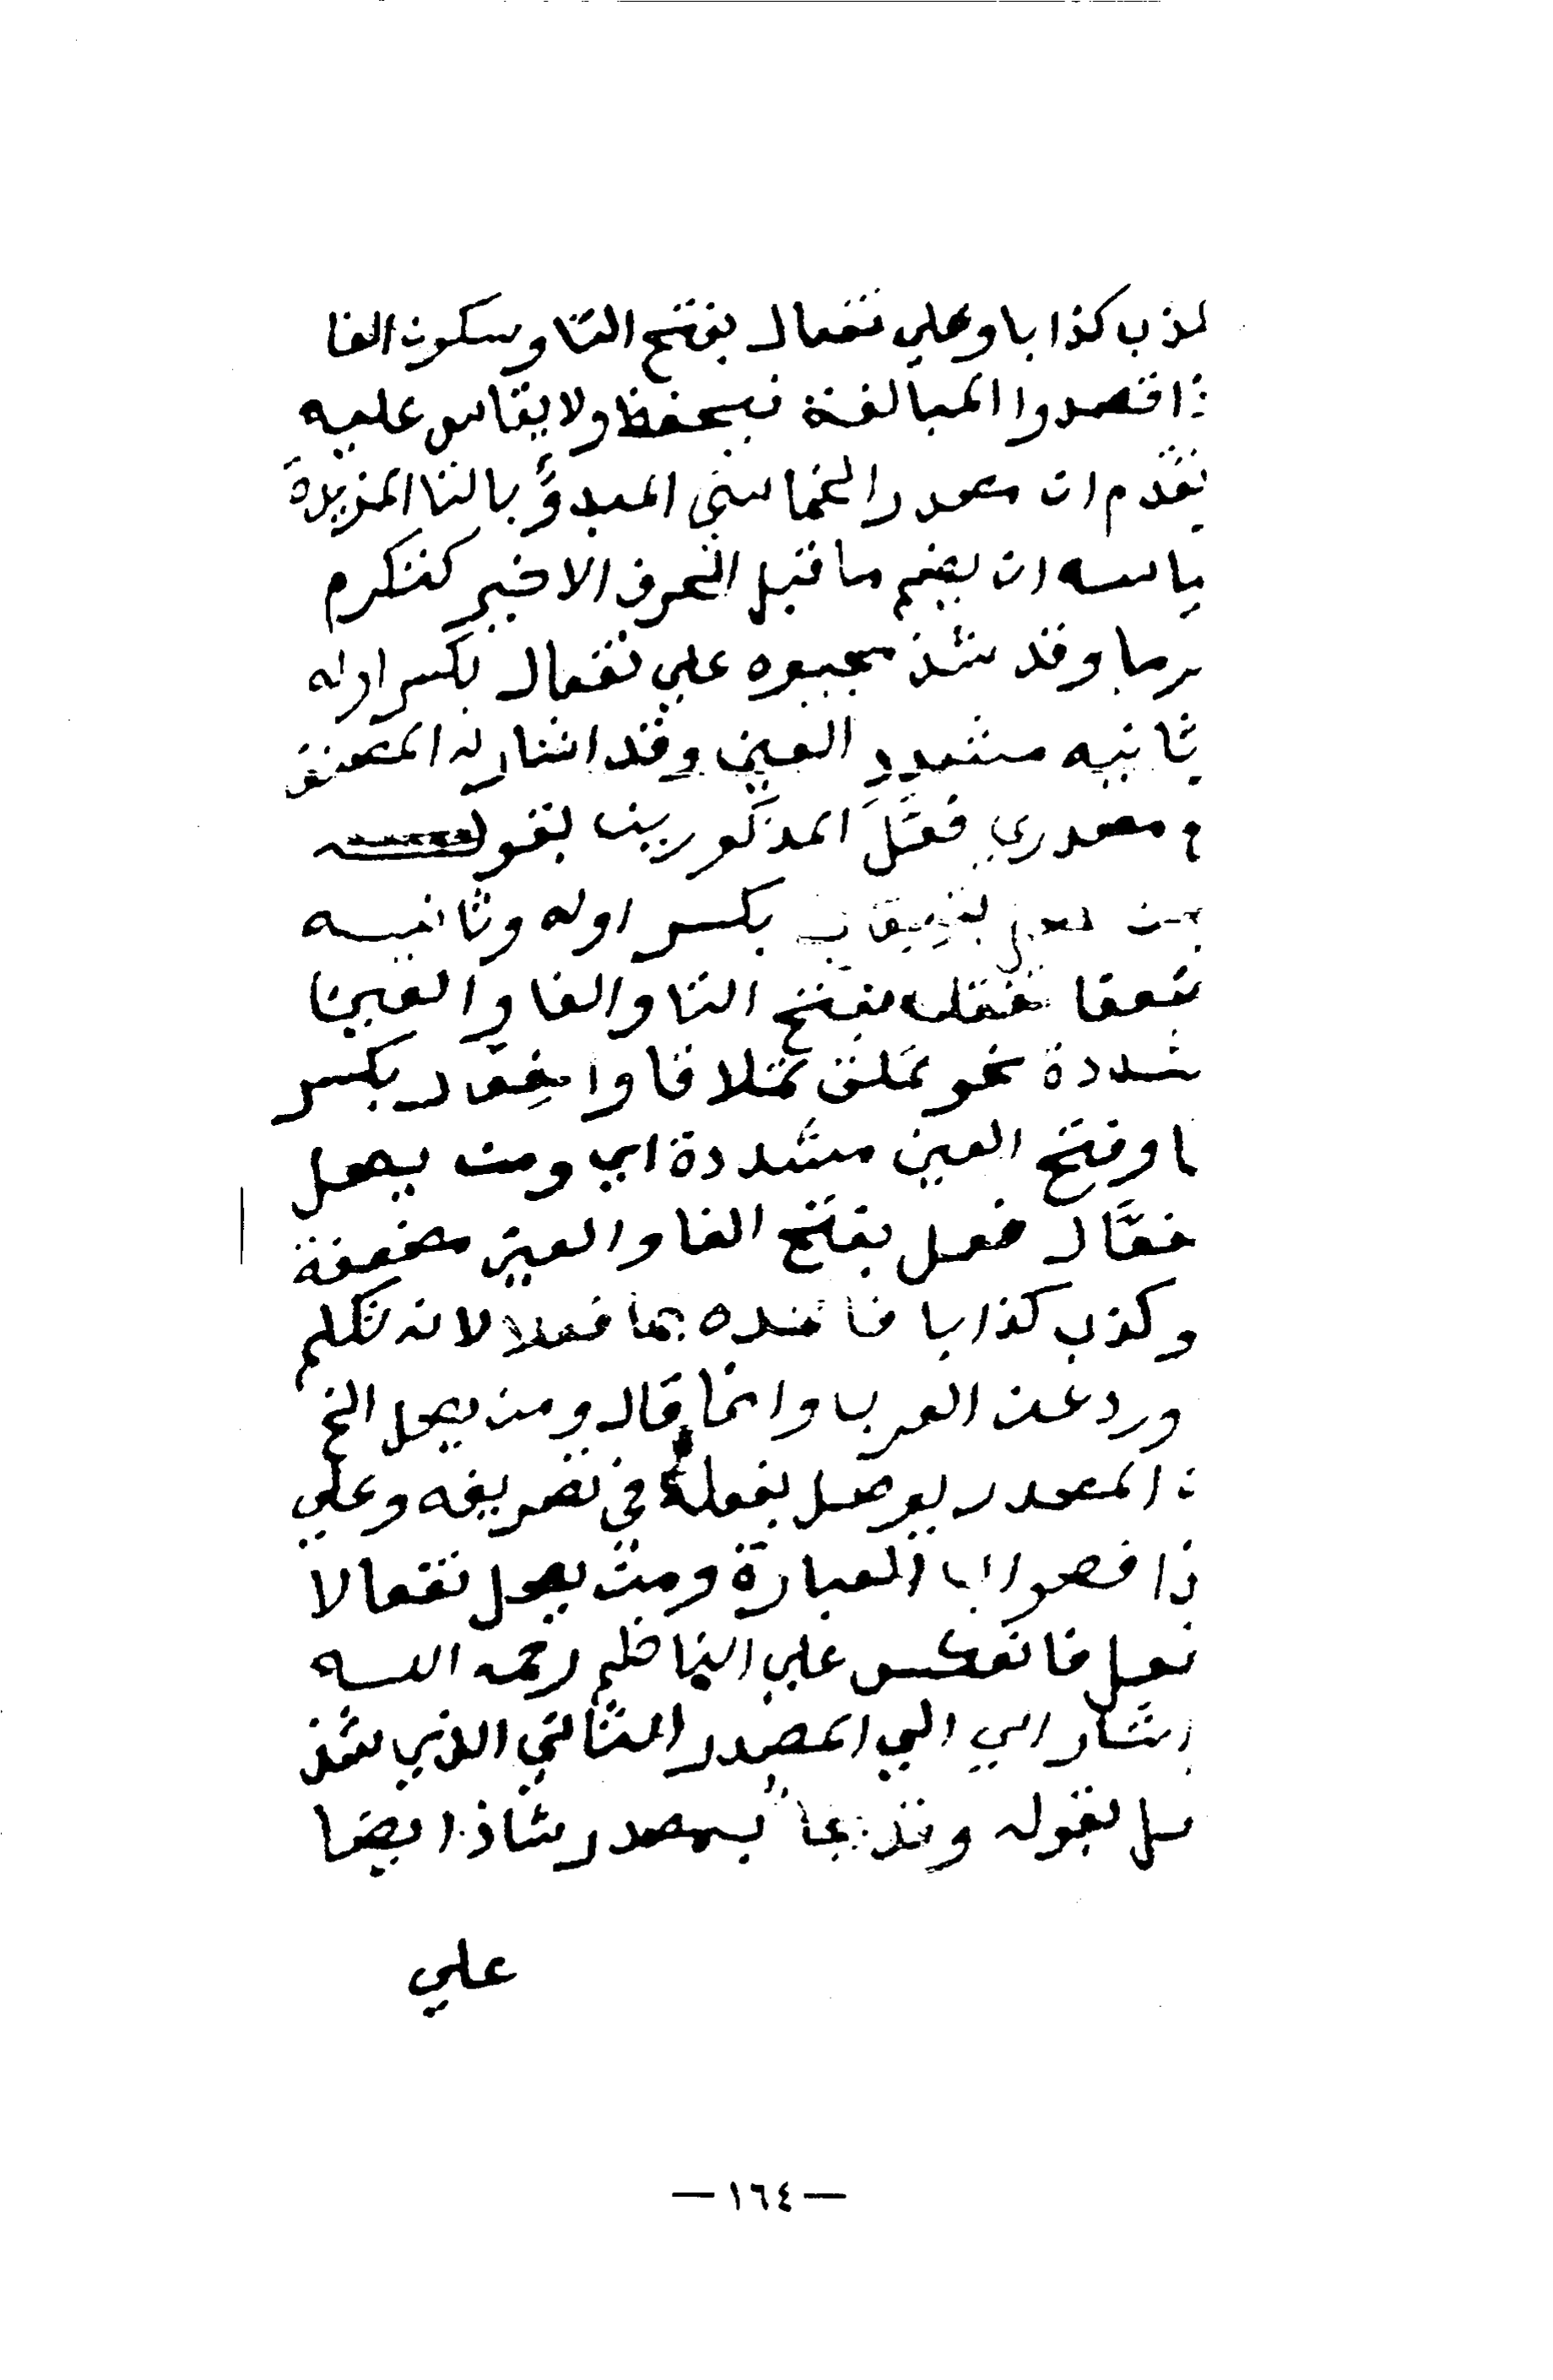 كذب كذابا وعلي تفعال بفتح التا وسكون الفا
ذا قصدوا المبالغة فيحفظ ولا يقاس عليه
تقدم ان مصدر الخماسي المبدوّ بالتا المزيدة
ياسه ان يضم ما قبل الحرف الاخير كتكرم
رما وقد شذ مجيوه علي تفعال بكسر اوله
ثانيه مشدد العين وقد اشار له المصنف
مصدري فعّل المذكورين بقوله
بكسر اوله وثانيه
بفتح التا والفا والعين
شددة نحو تملق تملاقا والفعّال بكسر
ا وفتح العين مشددة اي ومن يصل
فعّال فعل بفتح الفا والعين مخففة
وكذب كذابا فا بهما فعلا لانه تكلم
ورد عن العرب وانما قال ومن يصل الخ
ن المصدر يوصل بفعله في تصريفه وعلي
ذا فصواب العبارة ومن يصل تفعالا
تفعل فانعكس علي الناظم رحمه الله
اشار الي الي المصدر الثالث الذي شذ
بقوله وقد بمصدر شاذ ايضا
علي
— ١٦٤ —